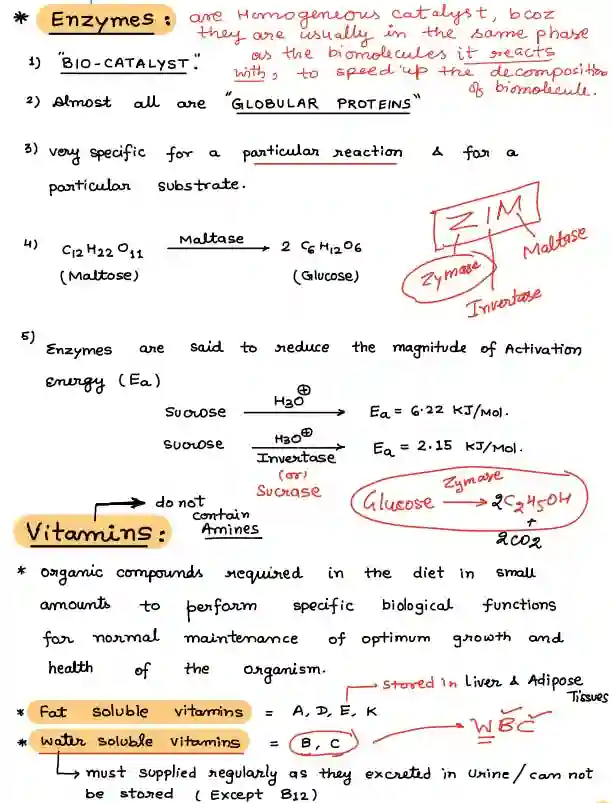 * Enzymes : are Homogeneous catalyst, bcoz
they are usually in the same phase
as the biomolecules it reacts
with, to speed up the decomposition
of biomolecule.
1) "BIO-CATALYST".
2) Almost all are "GLOBULAR PROTEINS"
3) very specific for a particular reaction & for a
particular substrate.
ZIM
Zymase
Invertase
Maltase
4) C12H22O11 Maltase → 2 C6H12O6
(Maltose) (Glucose)
5) Enzymes are said to reduce the magnitude of Activation
energy (Ea)
Sucrose H3O⊕ → Ea = 6.22 KJ/Mol.
sucrose H3O⊕ → Ea = 2.15 KJ/Mol.
Invertase
(or)
Sucrase
Glucose Zymase → 2C2H5OH
+
2CO2
→ do not
contain
Amines
Vitamins :
* organic compounds required in the diet in small
amounts to perform specific biological functions
for normal maintenance of optimum growth and
health of the organism.
→ stored in Liver & Adipose
Tissues
* Fat soluble vitamins = A, D, E, K
* water soluble vitamins = B, C → WBC
→ must supplied regularly as they excreted in urine / can not
be stored ( Except B12)